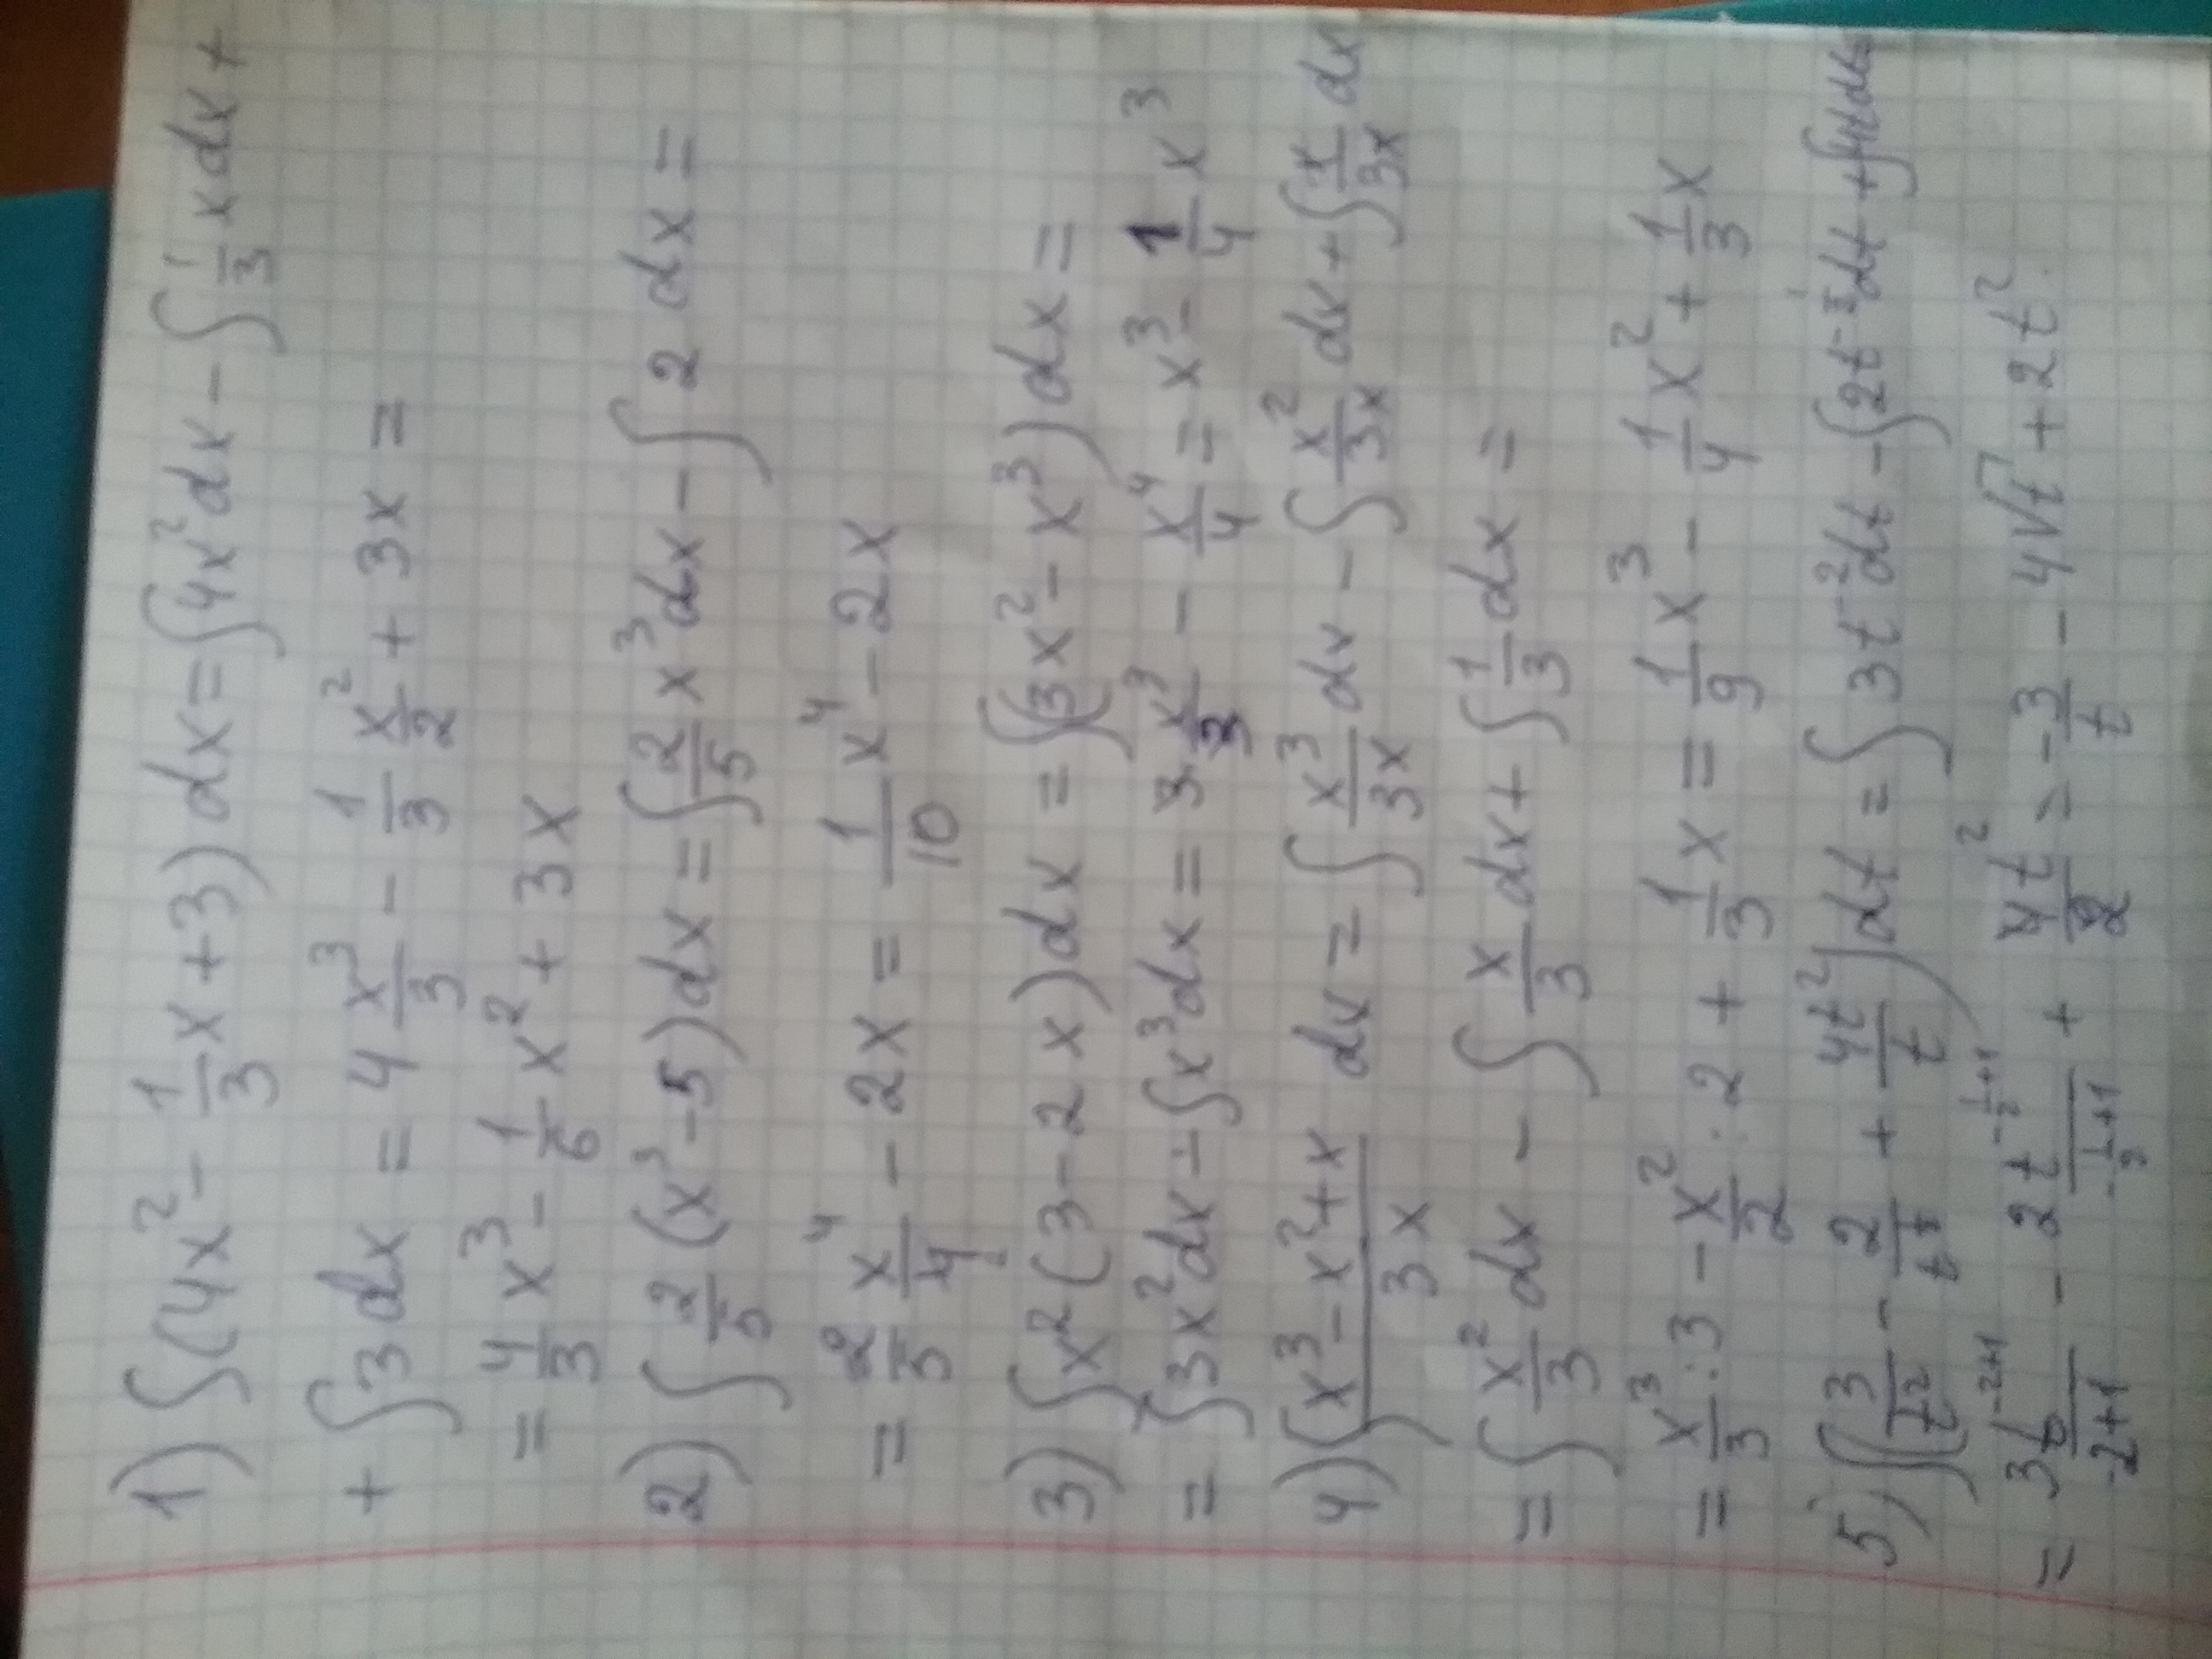 1) ∫(4x² - 1/3 x + 3) dx = ∫4x² dx - ∫1/3 x dx +
+ ∫3 dx = 4 x³/3 - 1/3 x²/2 + 3x =
= 4/3 x³ - 1/6 x² + 3x
2) ∫ 2/5 (x³ - 5) dx = ∫ 2/5 x³ dx - ∫ 2 dx =
= 2/5 x⁴/4 - 2x = 1/10 x⁴ - 2x
3) ∫ x² (3 - 2x) dx = ∫(3x² - x³) dx =
= ∫3x² dx - ∫x³ dx = 3 · x³/3 - x⁴/4 = x³ - 1/4 x³
4) ∫ (x³ - x² + x)/3x dx = ∫ x³/3x dx - ∫ x²/3x dx + ∫ x/3x dx
= ∫ x²/3 dx - ∫ x/3 dx + ∫ 1/3 dx =
= x³/3 : 3 - x²/2 : 2 + 1/3 x = 1/9 x³ - 1/4 x² + 1/3 x
5) ∫(3/t² - 2/ + 4t²/t) dt = ∫ 3t⁻² dt - ∫ 2t dt +
= 3t⁻²⁺¹/-2+1 - 2t^(-1/2+1)/(-1/2+1) + 4t²/2 = -3/t - 4√t + 2t²